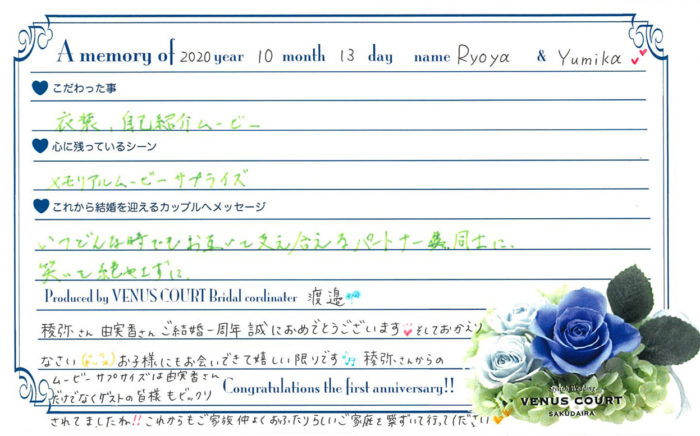 A memory of 2020 year 10 month 13 day name Ryoya & Yumika
こだわった事
衣装、自己紹介ムービー
心に残っているシーン
メモリアルムービー サプライズ
これから結婚を迎えるカップルへメッセージ
いつどんな時でもお互いに支え合えるパートナー 同士に、
笑いを絶やさずに。
Produced by VENUS COURT Bridal cordinater 渡邉
稜弥さん 由実香さん ご結婚一周年 誠におめでとうございます そしておかえり
なさい お子様にもお会いできて嬉しい限りです 稜弥さんからの
ムービーサプライズは由実香さん
だけでなくゲストの皆様もビックリ
Congratulations the first anniversary!!
されてましたね!! これからもご家族仲よくおふたりらしいご家庭を築いて行って下さい
VENUS COURT
SAKUDAIRA